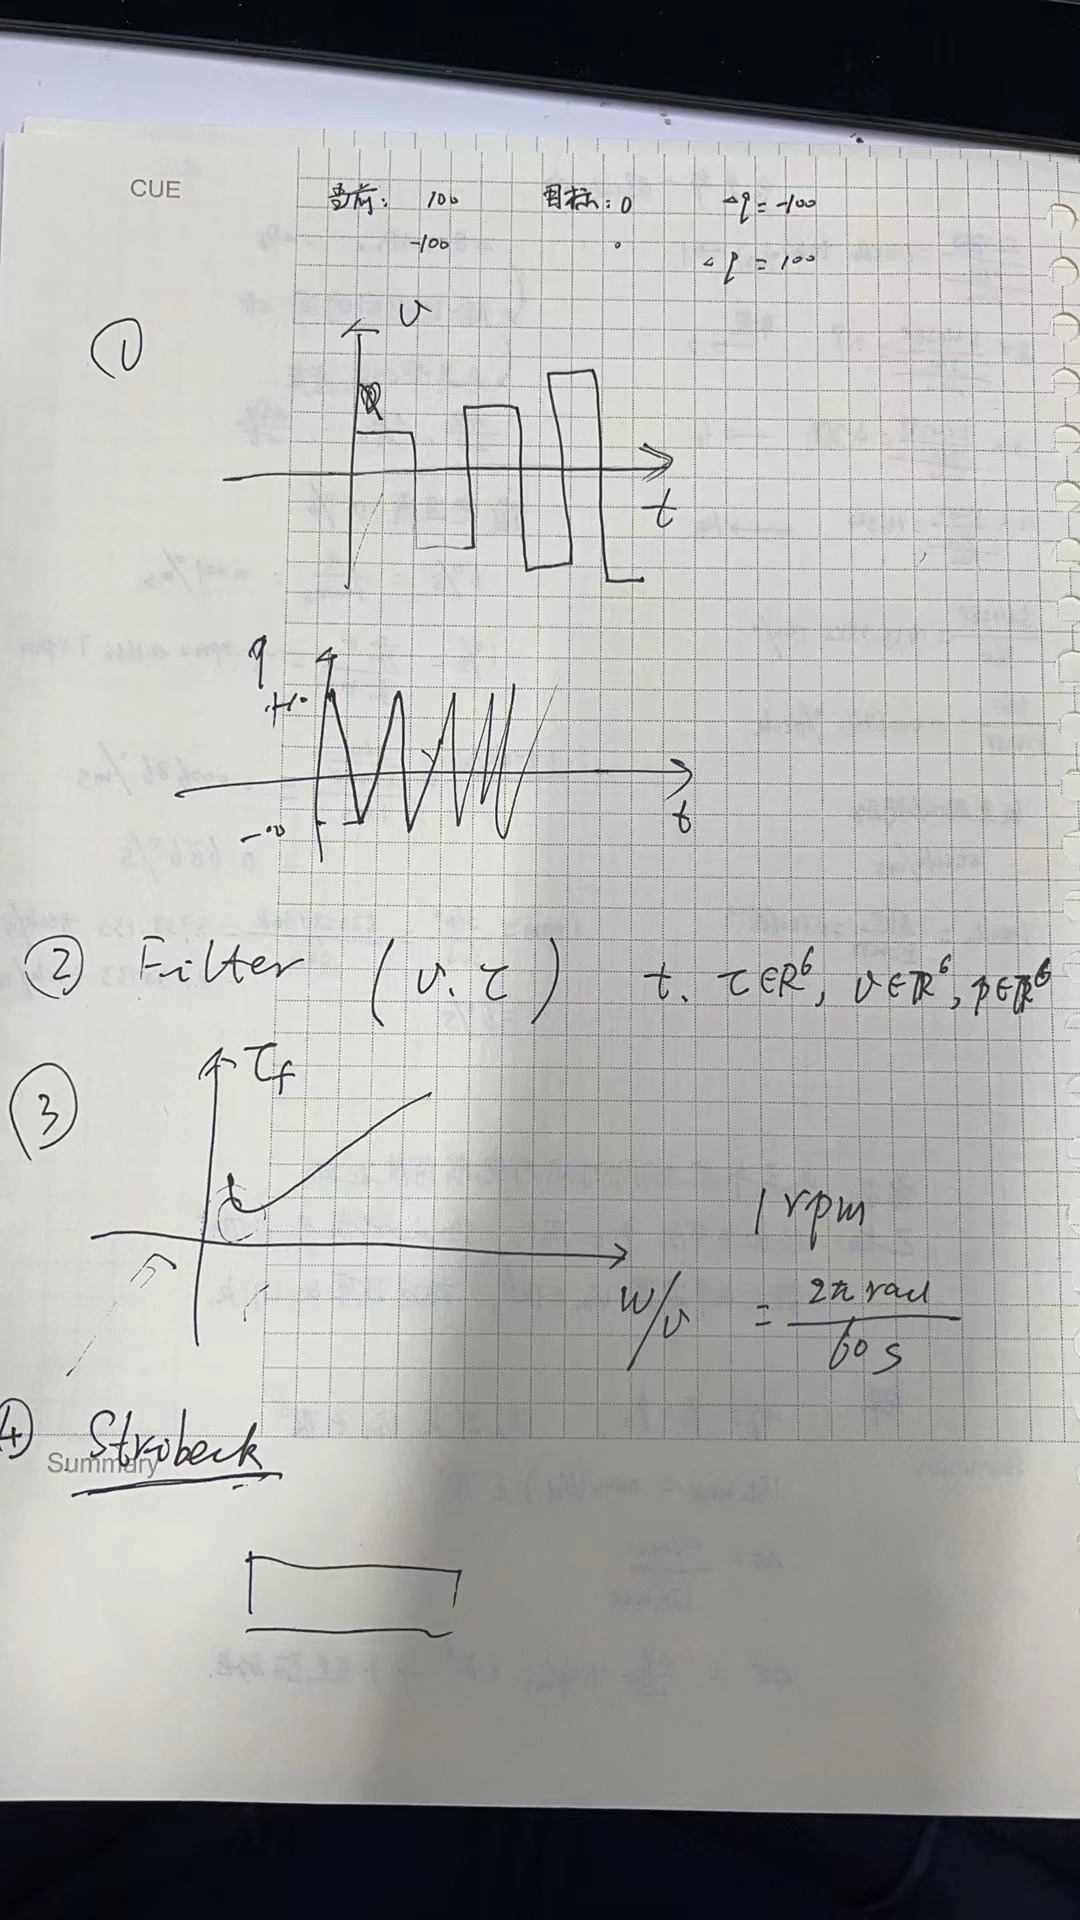 CUE
当前: 100 目标: 0 Δq = -100
-100 0 Δq = 100
① v
t
q
t
② Filter (v. τ) t. τ∈R⁶, v∈R⁶, p∈R⁶
③ τf
1 rpm
w/v = 2π rad / 60 s
④ Strobeck
Summary